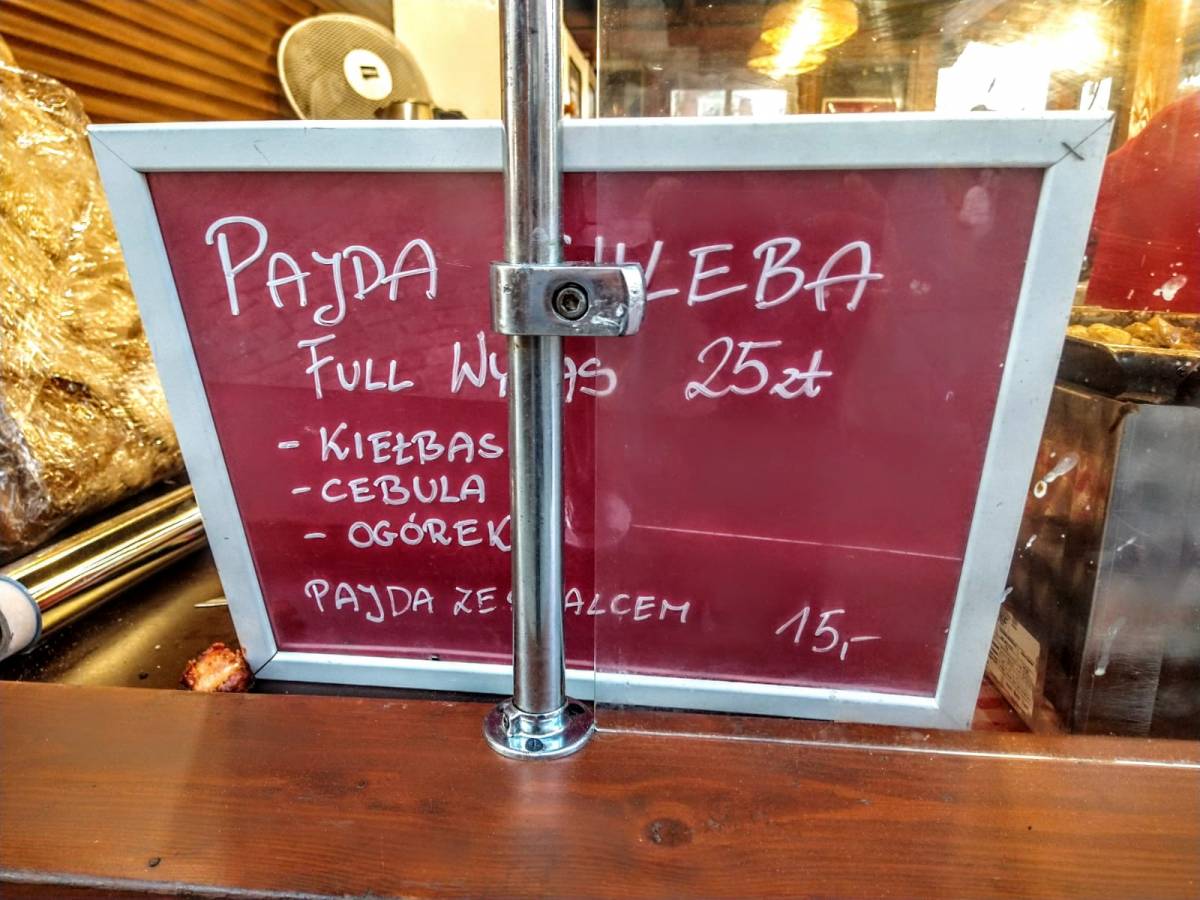 PAJDA CHLEBA
FULL WYPAS 25zł
- KIEŁBASA
- CEBULA
- OGÓREK
PAJDA ZE SMALCEM 15,-